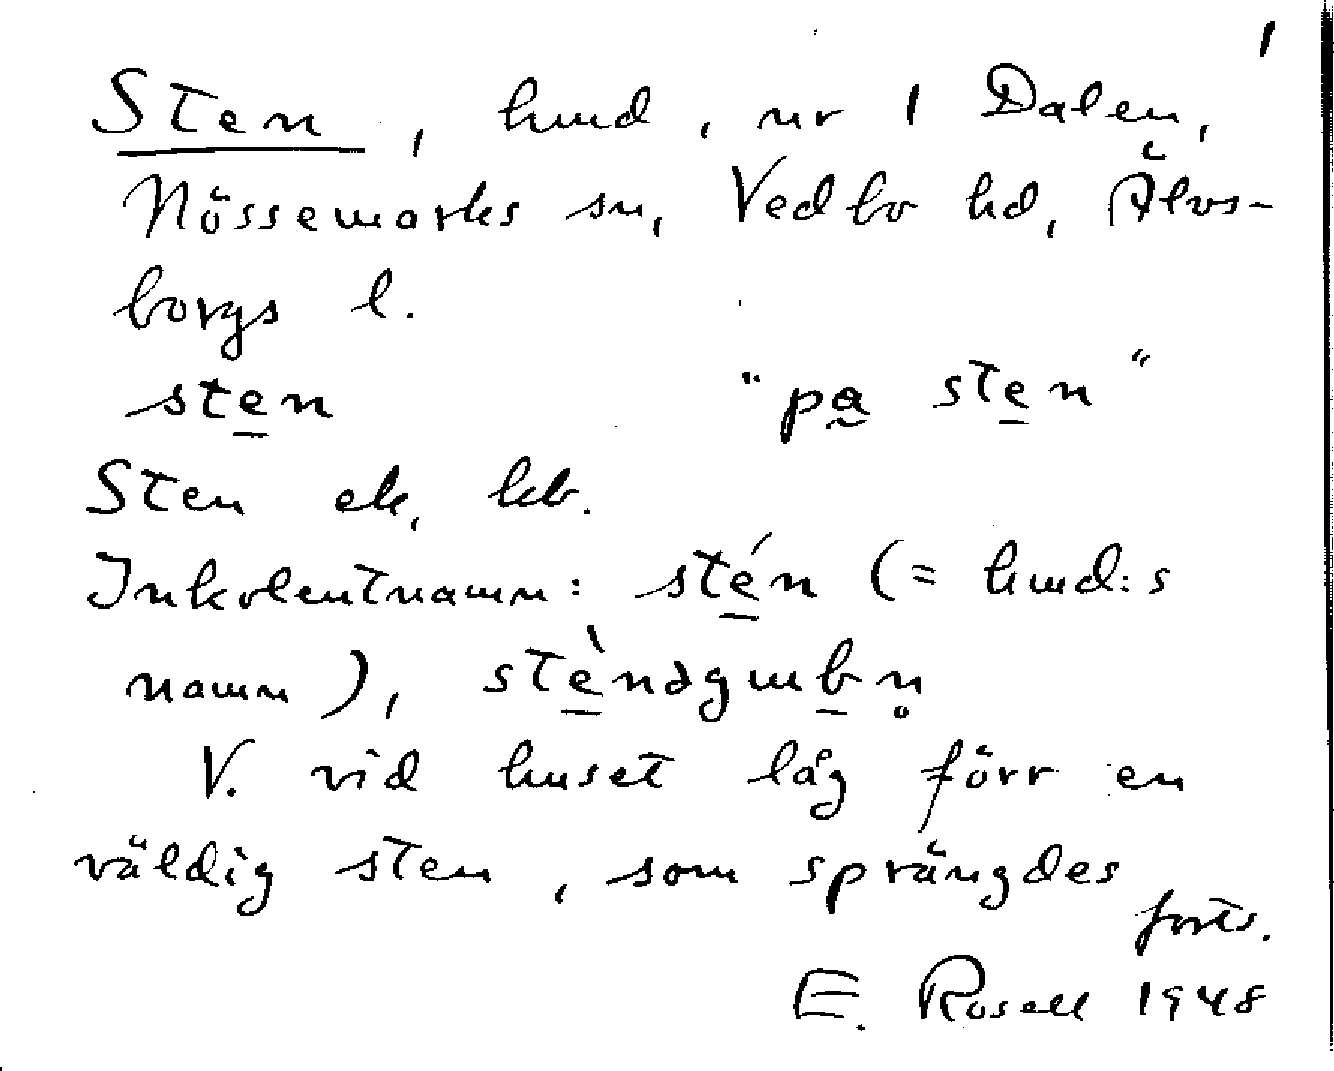 1
Sten, hmd, nr 1 Dalen,
Nössemarks sn, Vedbo hd, Älvs-
borgs l.
sten "pa sten"
Sten ek, kb.
Inkolentnamn: stén (= hmd:s
namn), stènəgumbn̥
V. vid huset låg förr en
väldig sten, som sprängdes
forts.
E. Rosell 1948